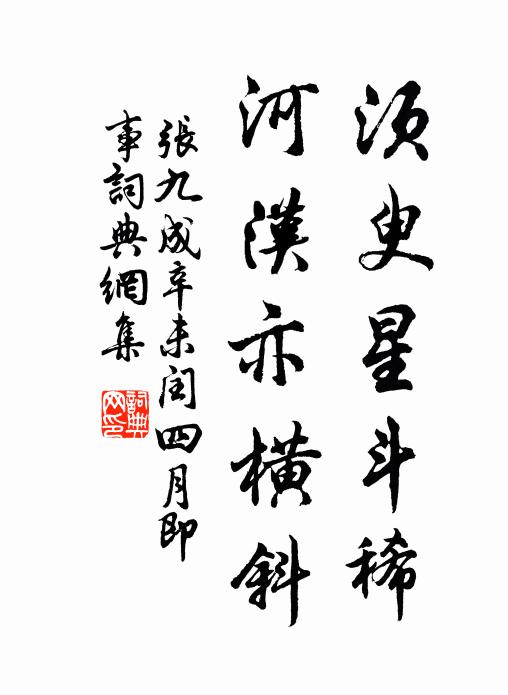 須臾星斗稀
河漢亦橫斜
張九成辛未閏四月即
事詞典網集
詞典
网印